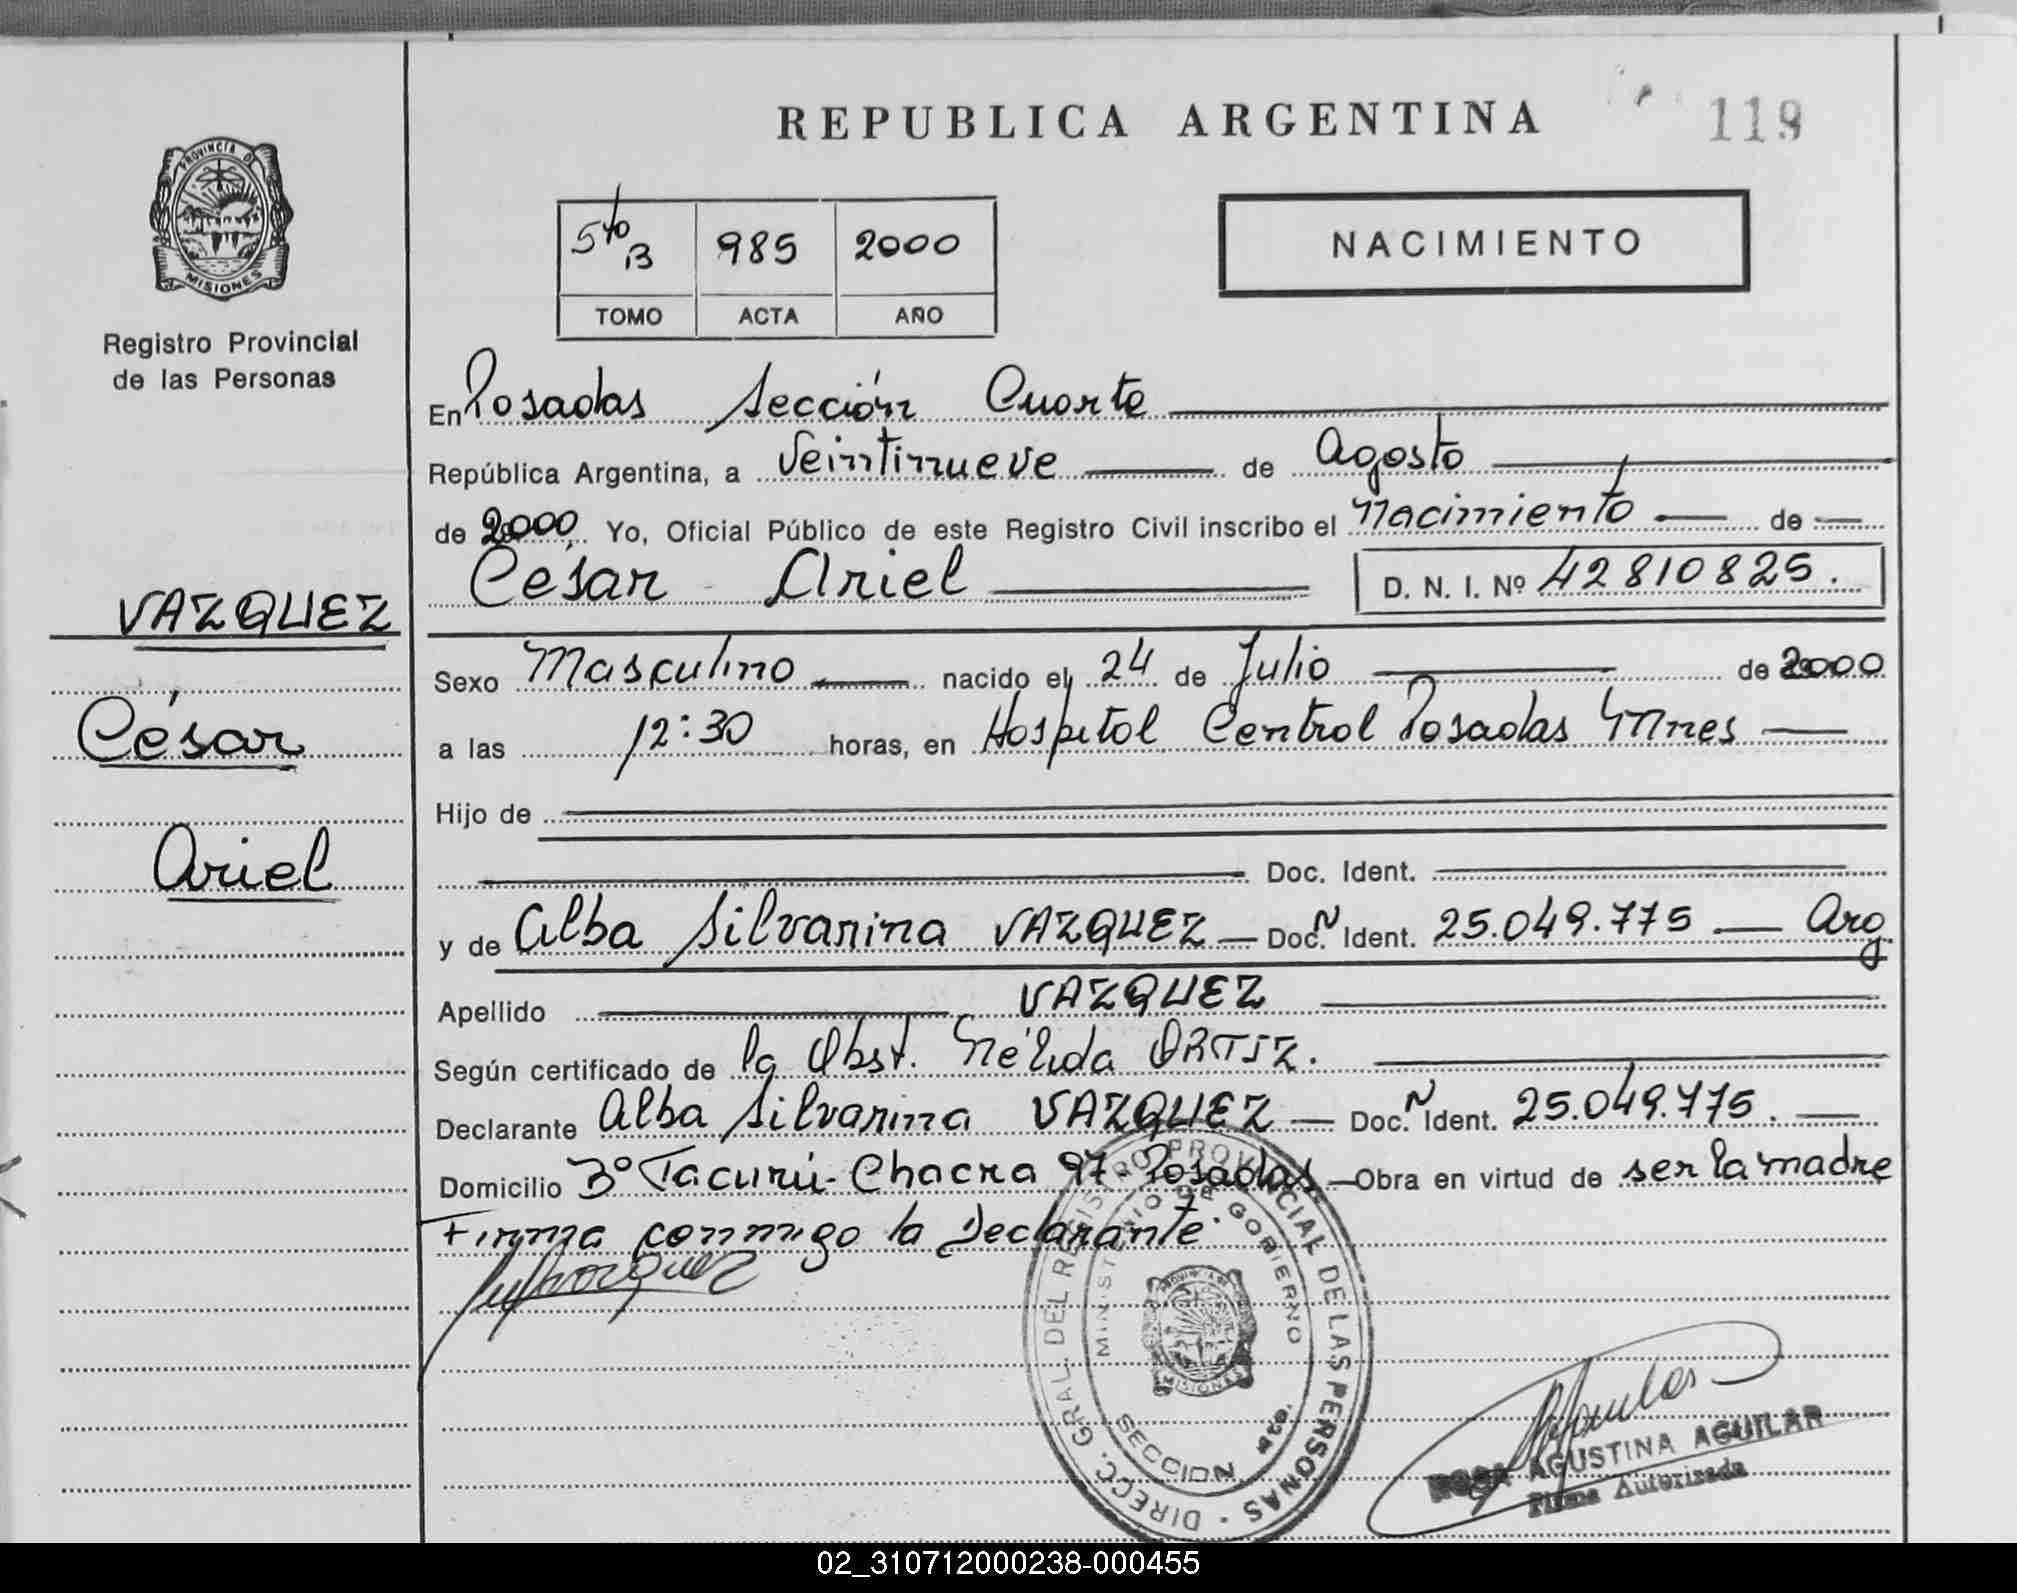 REPUBLICA ARGENTINA
119
PROVINCIA DE
MISIONES
Registro Provincial
de las Personas
5to B 985 2000
TOMO ACTA AÑO
NACIMIENTO
En Posadas Sección Cuarta
República Argentina, a Veintinueve de Agosto
de 2000 Yo, Oficial Público de este Registro Civil inscribo el Nacimiento de
César Ariel D. N. I. Nº 42810825.
VAZQUEZ
César
Ariel
Sexo Masculino nacido el 24 de Julio de 2000
a las 12:30 horas, en Hospital Central Posadas Mnes
Hijo de
Doc. Ident.
y de Alba Silvanina VAZQUEZ Doc. N Ident. 25.049.775 Arg
Apellido VAZQUEZ
Según certificado de la Obst. Nélida ORTIZ.
Declarante Alba Silvanina VAZQUEZ Doc. N Ident. 25.049.775.
Domicilio Bº Tacurú - Chacra 97 - Posadas Obra en virtud de ser la madre
Firma conmigo la Declarante.
DIRECC. GRAL. DEL REGISTRO PROVINCIAL DE LAS PERSONAS
MINISTERIO DE GOBIERNO
PROVINCIA DE
MISIONES
SECCION 4ta.
ROSA AGUSTINA AGUILAR
Firma Autorizada
02_310712000238-000455